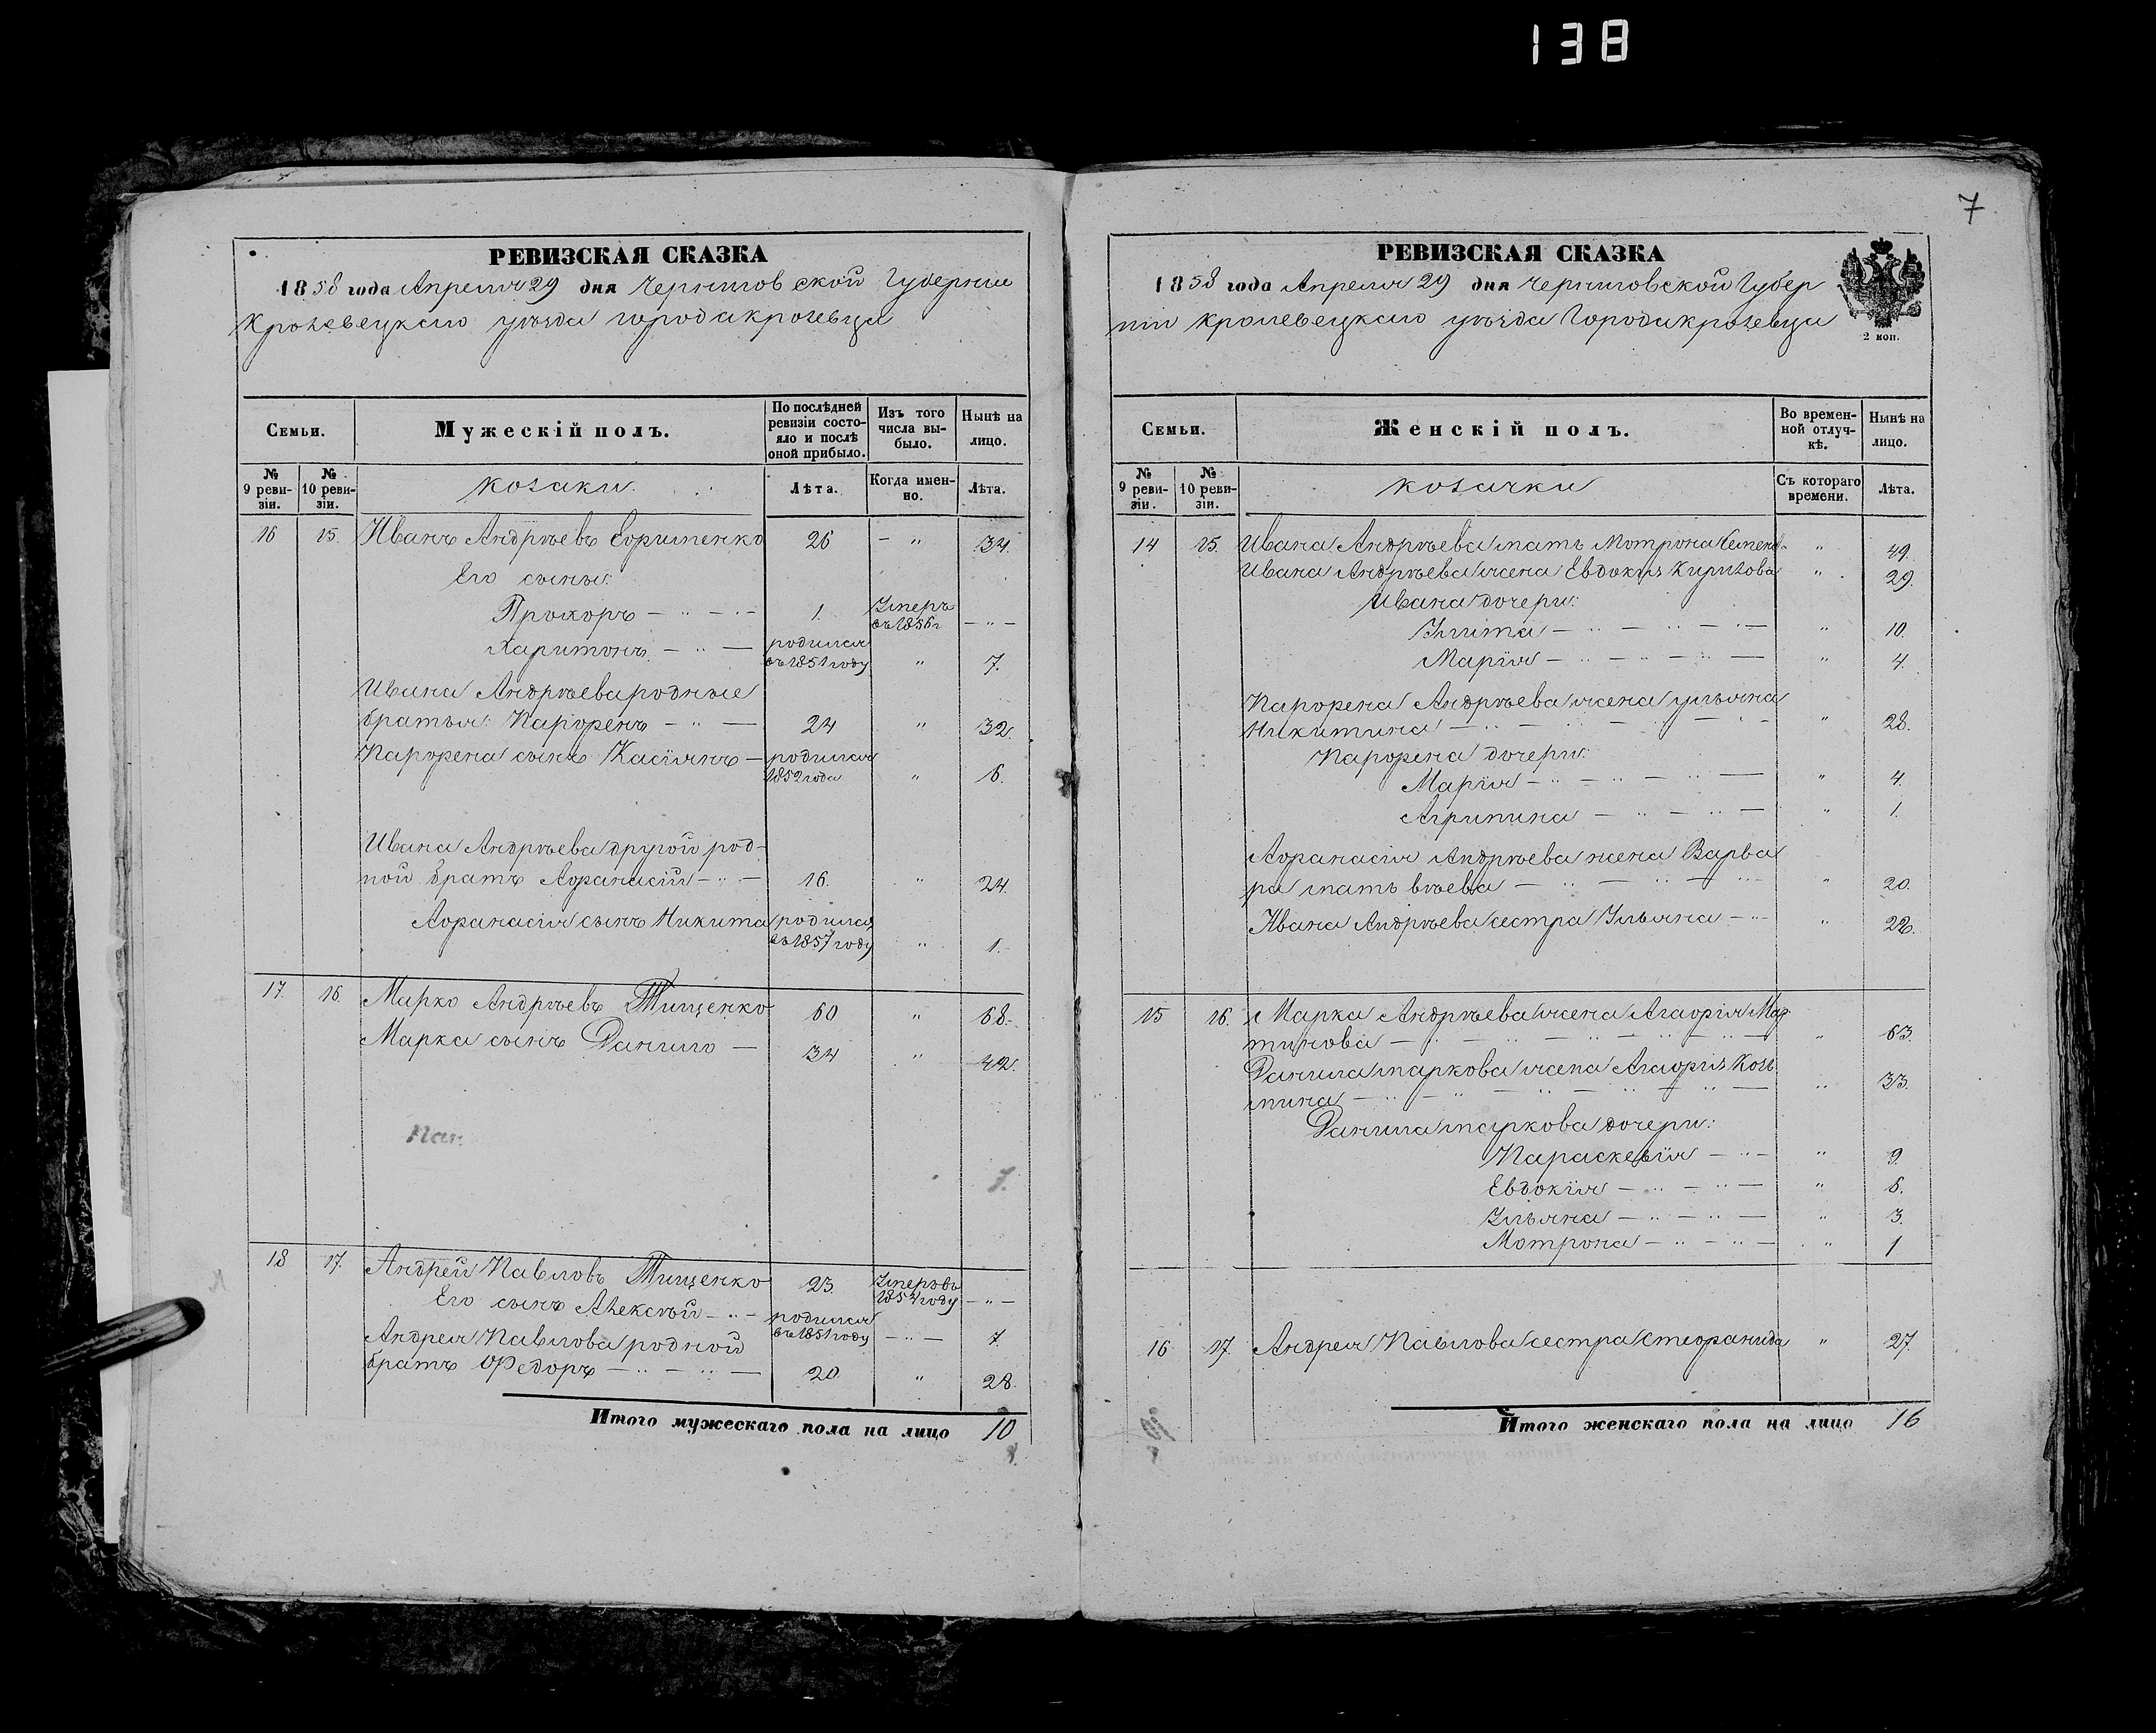 138
7
РЕВИЗСКАЯ СКАЗКА
1858 года Апреля 29 дня Черниговской Губернии
Кролевецкаго уѣзда города Кролевца
Семьи.
Мужескій полъ.
По послѣдней ревизіи состояло и послѣ оной прибыло.
Изъ того числа выбыло.
Нынѣ на лицо.
№ 9 ревизіи.
№ 10 ревизіи.
козаки.
Лѣта.
Когда именно.
Лѣта.
16 15. Иванъ Андрѣевъ Ефименко 26 – " 34.
Его сыны:
Прокоръ – " – 1. Умеръ въ 1856 г – " –
Харитонъ – " – родился въ 1851 году " 7.
Ивана Андрѣева родные
братья: Парфенъ – " – 24 " 32.
Парфена сынъ Касіянъ – родился 1852 года " 6.
Ивана Андрѣева другой род-
ной братъ Афанасій – " – 16. " 24.
Афанасія сынъ Никита родился въ 1857 году " 1.
17. 16. Марко Андрѣевъ Тищенко 60 " 68.
Марка сынъ Данило – 34 " 42.
7.
18 17. Андрей Павловъ Тищенко 23. Умеръ въ 1854 году – " –
Его сынъ Алексѣй – " – родился въ 1851 году – " – 7.
Андрея Павлова родной
братъ Федоръ – " – " – 20 " 28.
Итого мужескаго пола на лицо 10
8.
РЕВИЗСКАЯ СКАЗКА
1858 года Апреля 29 дня Черниговской Губер
ніи Кролевецкаго уѣзда Города Кролевца
2 коп.
Семьи.
Женскій полъ.
Во временной отлучкѣ.
Нынѣ на лицо.
№ 9 ревизіи.
№ 10 ревизіи.
козачки
Съ котораго времени.
Лѣта.
14 15. Ивана Андрѣева мать Мотрона " 49.
Ивана Андрѣева жена Евдокія Кирилова " 29.
Ивана дочери:
Улита – " – " – " 10.
Марія – " – " – " 4.
Парфена Андрѣева жена Ульяна
Никитина – " – " – " 28.
Парфена дочери:
Марія – " – " – " 4.
Агрипина – " – " – " 1.
Афанасія Андрѣева жена Варва
ра Матвѣева – " – " – " 20.
Ивана Андрѣева сестра Ульяна – " " 22.
15 16. Марка Андрѣева жена Агафія Мар
тинова – " – " – " 63.
Данила Маркова жена Агафія Козь
мина – " – " – " 33.
Данила Маркова дочери:
Параскевія – " – " 9.
Евдокія – " – " – " 6.
Ульяна – " – " – " 3.
Мотрона – " – " – " 1
16 17. Андрея Павлова сестра Стефанида " 27.
Итого женскаго пола на лицо 16